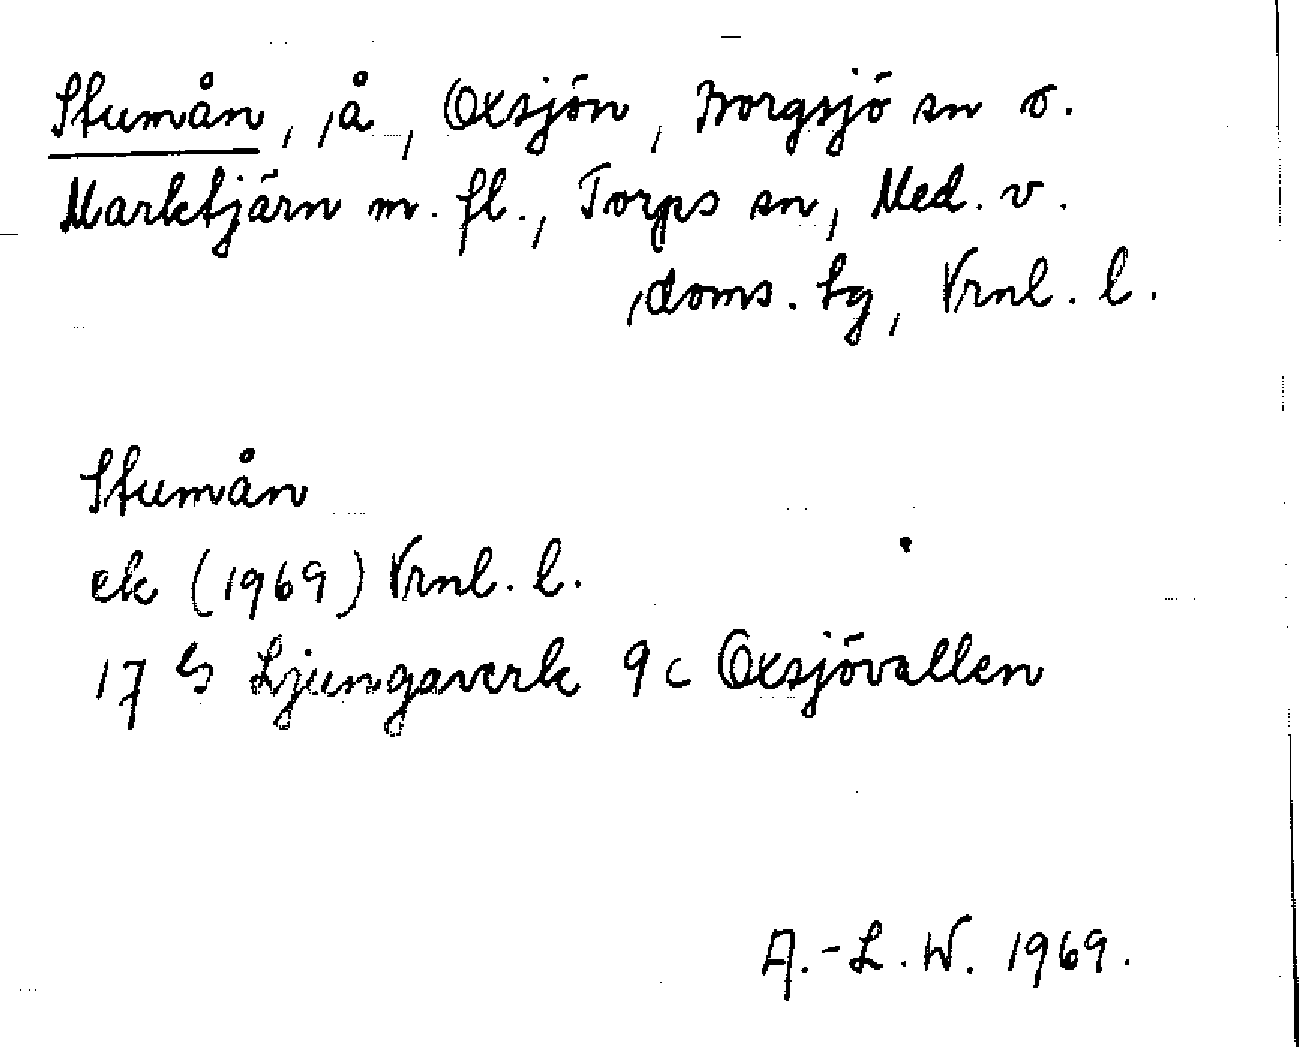 Stumån, å, Oxsjön, Borgsjö sn o.
Marktjärn m. fl., Torps sn, Med. v.
doms. tg, Vrnl. l.
Stumån
ek (1969) Vrnl. l.
17 G Ljungaverk 9 c Oxsjövallen
A.-L. W. 1969.